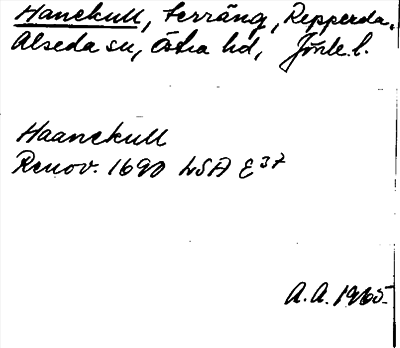 Hanekull, terräng, Repperda,
Alseda sn, Östra hd, Jönk. l.
Haanekull
Renov. 1690 LSA E37
A.A. 1965